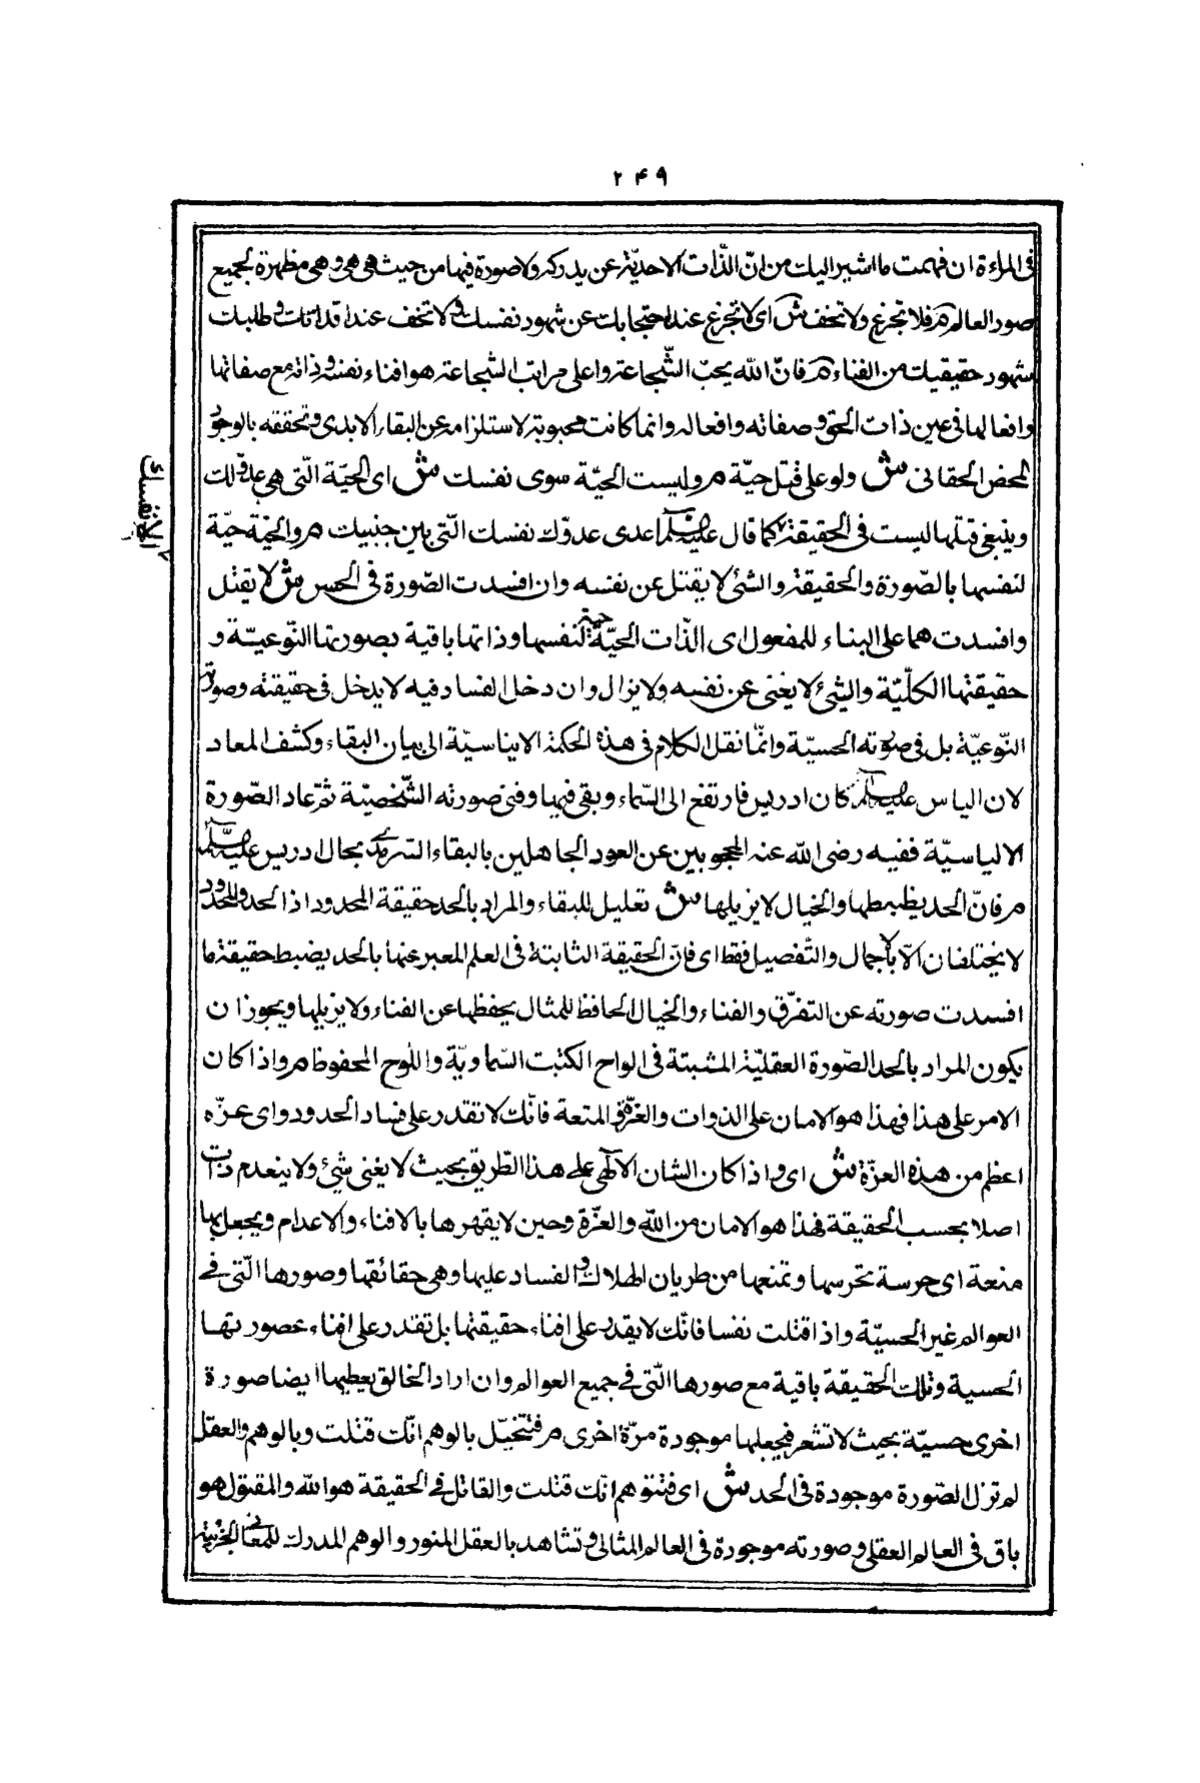 ۲۴۹
فى المراءة ان فهمت ما اشير اليك من انّ الذّات الاحديّة عن يدركه ولا صورة فيها من حيث هى هى وهى مظهرة لجميع
صور العالم م فلا تجزع ولا تخف ش اى لا تجزع عند احتجابك عن شهود نفسك ولا تخف عند اقدامك وطلبك
شهود حقيقتك من الفناء م فانّ الله يحبّ الشّجاعة واعلى مراتب الشجاعة هو افناء نفسه وذاته مع صفاتها
وافعالها فى عين ذات الحق وصفاته وافعاله وانما كانت محبوبة لاستلزامه عن البقاء الابدى وتحققه بالوجود
المحض الحقانى ش ولو على قتل حيّة م وليست الحيّة سوى نفسك ش اى الحيّة الّتى هى عدوّ لك
وينبغى قتلها ليست فى الحقيقة كما قال عليه السلم اعدى عدوّك نفسك الّتى بين جنبيك م والحيّة حيّة
الا نفسك
لنفسها بالصّورة والحقيقة والشئ لا يقتل عن نفسه وان افسدت الصّورة فى الحس ش لا يقتل
وافسدت هما على البناء للمفعول اى الذّات الحيّة حية لنفسها وذاتها باقية بصورتها النّوعيّة و
حقيقتها الكلّيّة والشئ لا يغنى عن نفسه ولا يزال وان دخل الفساد فيه لا يدخل فى حقيقته وصورته
النّوعيّة بل فى صورته الحسيّة وانّما نقل الكلام فى هذه الحكمة الايناسيّة الى بيان البقاء وكشف المعاد
لان الياس عليه السلم كان ادريس فارتفع الى السّماء وبقى فيها وفنى صورته الشّخصيّة ثمّ عاد الصّورة
الالياسيّة ففيه رضى الله عنه المحجوبين عن العود الجاهلين بالبقاء السّرمدى بحال ادريس عليه السّلم
م فانّ الحد يظبطها والخيال لا يزيلها ش تعليل للبقاء والمراد بالحد حقيقة المحدود اذا الحد والمحدود
لا يختلفان الّا بالاجمال والتّفصيل فقط اى فانّ الحقيقة الثابتة فى العلم المعبر عنها بالحد يضبط حقيقة ما
افسدت صورته عن التفرّق والفناء والخيال الحافظ للمثال يحفظها عن الفناء ولا يزيلها ويجوز ان
يكون المراد بالحد الصّورة العقليّة المثبتة فى الواح الكتب السّماويّة واللّوح المحفوظ م واذا كان
الامر على هذا فهذا هو الامان على الذوات والعزّة والمنعة فانّك لا تقدر على فساد الحدود واى عزّه
اعظم من هذه العزّة ش اى واذا كان الشان الآلٓهى على هذا الطّريق بحيث لا يغنى شئ ولا ينعدم ذات
اصلا بحسب الحقيقة فهذا هو الامان من الله والعزّة وحين لا يقهرها بالافناء والاعدام ويجعل بها
منعة اى حرسة تحرسها وتمنعها من طريان الهلاك والفساد عليها وهى حقائقها وصورها الّتى فى
العوالم غير الحسيّة واذا قتلت نفسا فانّك لا يقدر على افناء حقيقتها بل تقدر على افناء عصورتها
الحسية وتلك الحقيقة باقية مع صورها الّتى فى جميع العوالم وان اراد الخالق يعطيها ايضا صورة
اخرى حسيّة بحيث لا تشعر فيجعلها موجودة مرّة اخرى م فتتخيّل بالوهم انّك قتلت وبالوهم والعقل
لم تزل الصّورة موجودة فى الحد ش اى فتتوهم انّك قتلت والقاتل فى الحقيقة هو الله والمقتول هو
باق فى العالم العقلى وصورته موجودة فى العالم المثالى وتشاهد بالعقل المنور والوهم المدرك للمعانى الجزئية